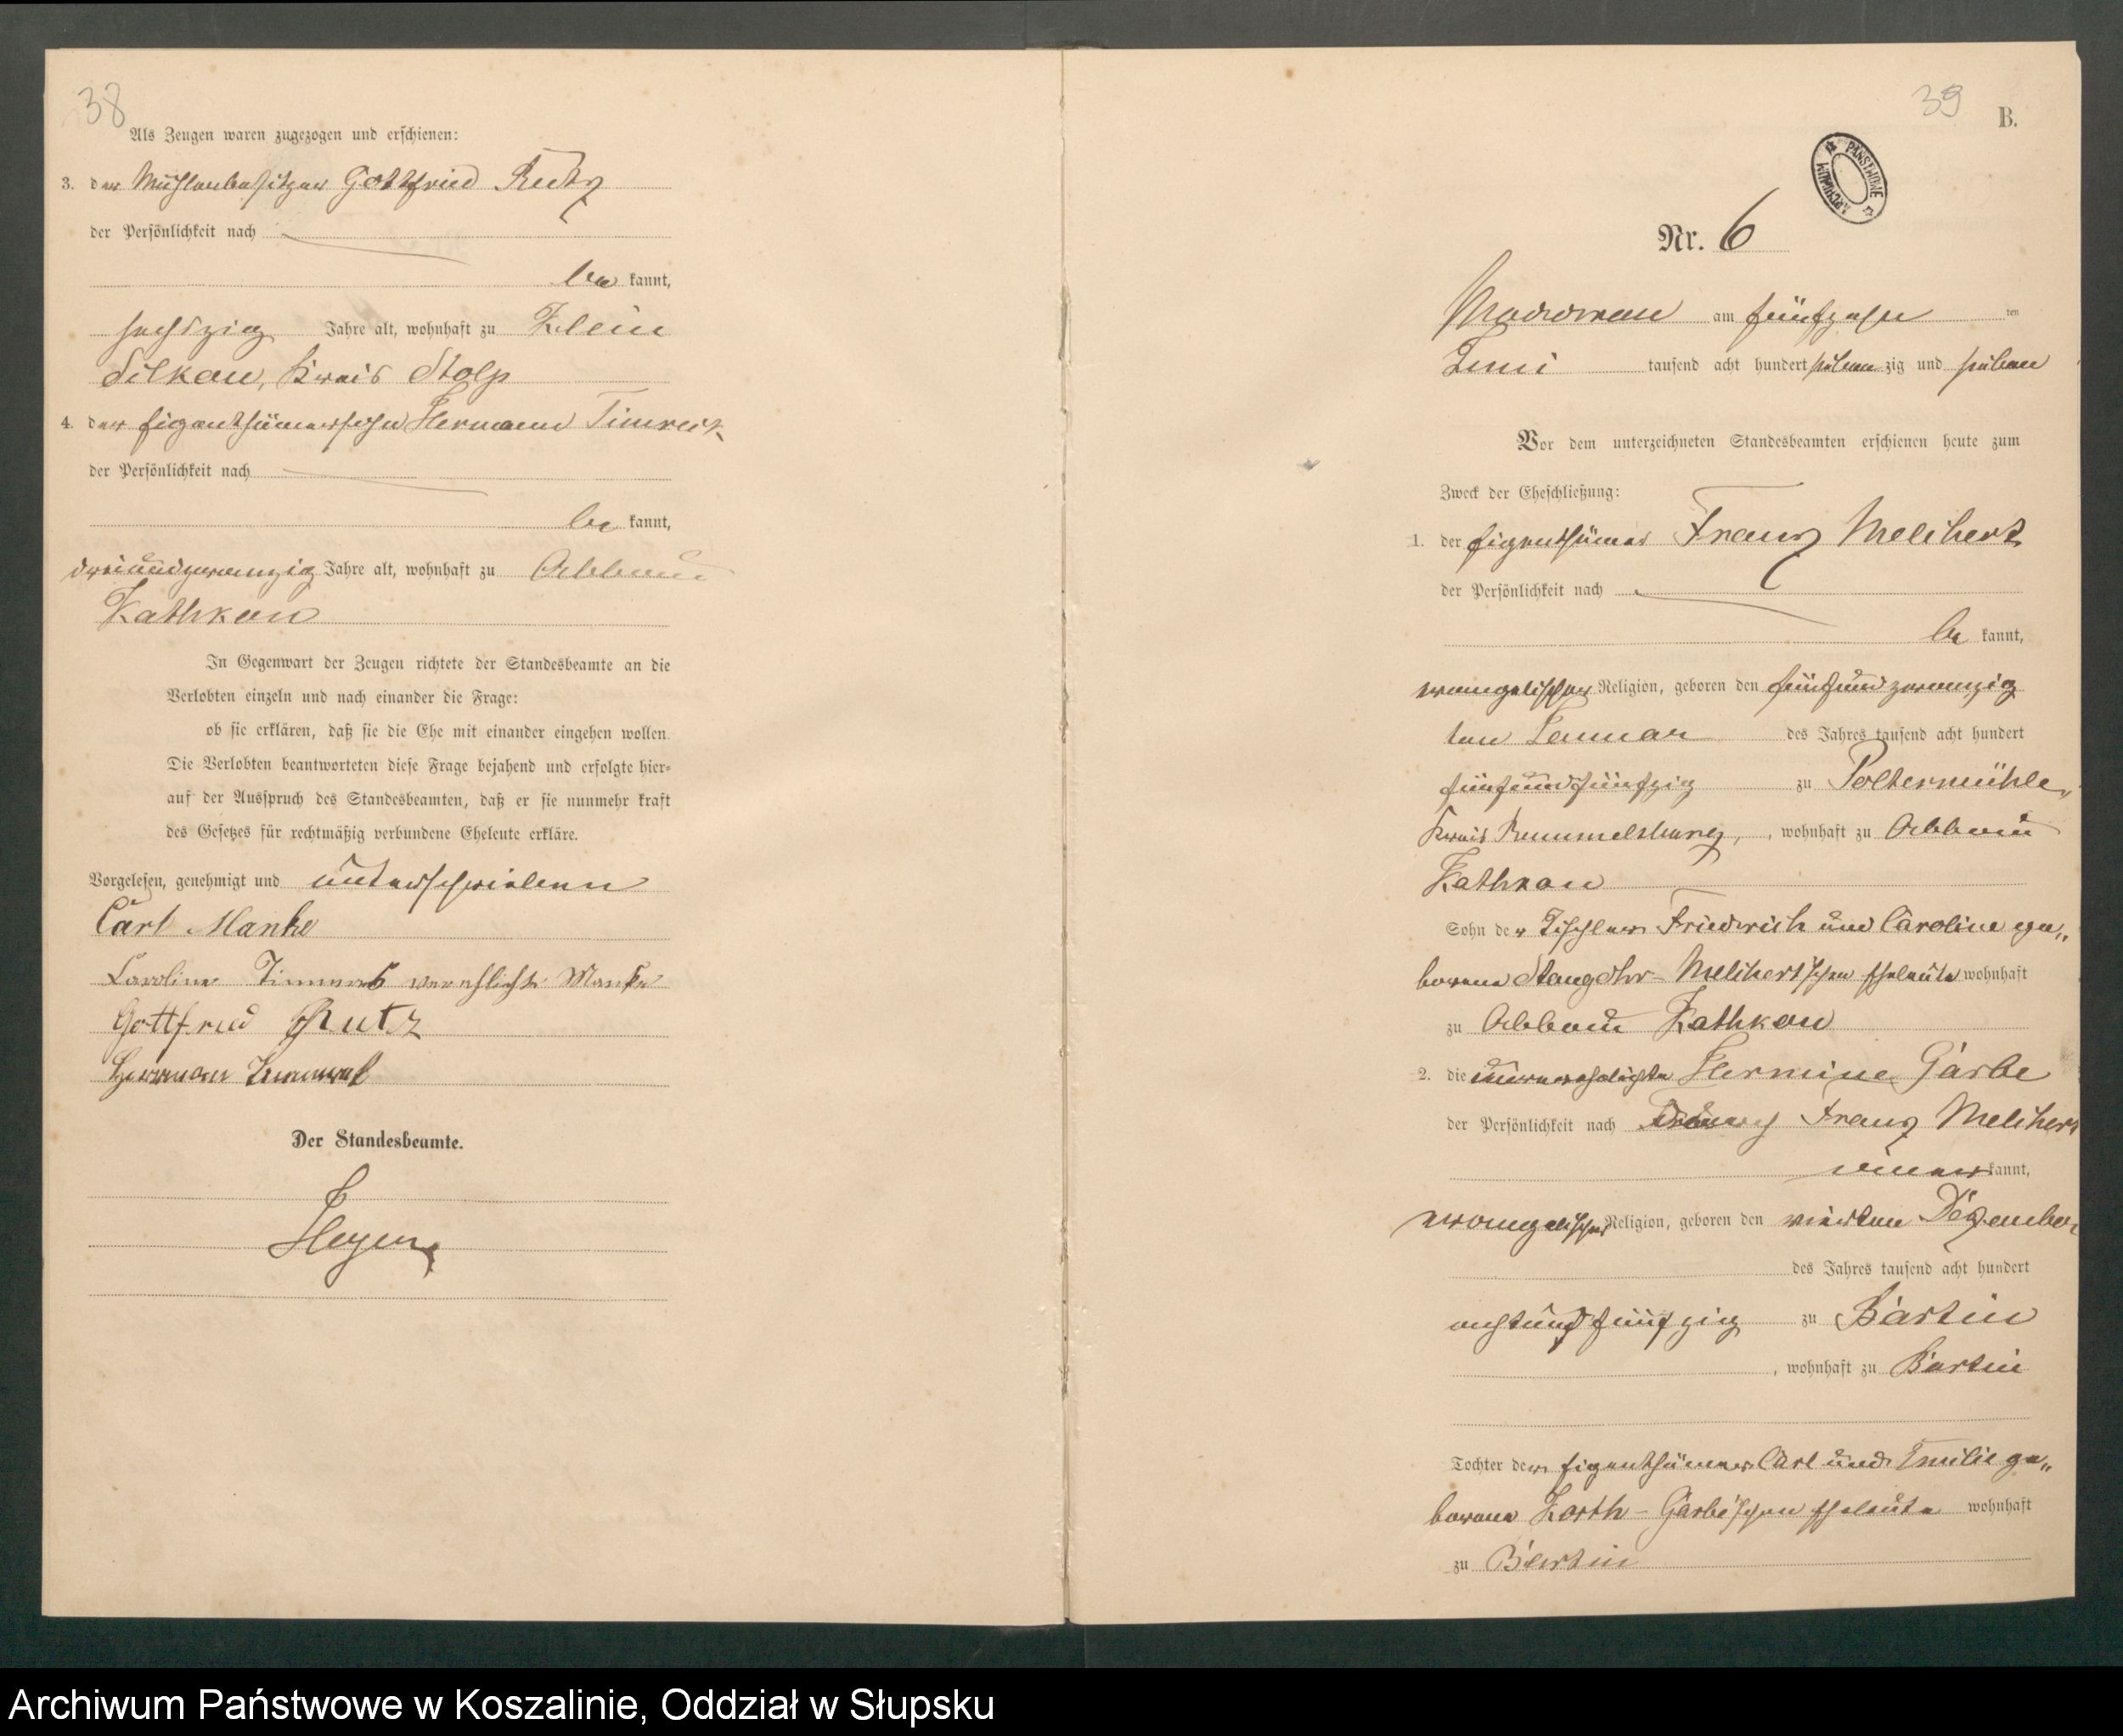 38
Als Zeugen waren zugezogen und erschienen:
3. der Mühlenbesitzer Gottfried Rutz
der Persönlichkeit nach
be kannt,
sechszig Jahre alt, wohnhaft zu Klein
Silkow, Kreis Stolp
4. der Eigenthümersohn Hermann
der Persönlichkeit nach
be kannt,
dreiundzwanzig Jahre alt, wohnhaft zu Abbau
Kathkow
In Gegenwart der Zeugen richtete der Standesbeamte an die
Verlobten einzeln und nach einander die Frage:
ob sie erklären, daß sie die Ehe mit einander eingehen wollen.
Die Verlobten beantworteten diese Frage bejahend und erfolgte hier-
auf der Ausspruch des Standesbeamten, daß er sie nunmehr kraft
des Gesetzes für rechtmäßig verbundene Eheleute erkläre.
Vorgelesen, genehmigt und unterschrieben
Carl Manke
Caroline verehlichte Manke
Gottfried Rutz
Herrman
Der Standesbeamte.
39
B.
ARCHIWUM PAŃSTWOWE
Nr. 6
am fünfzehn ten
Juni tausend acht hundert sieben zig und sieben
Vor dem unterzeichneten Standesbeamten erschienen heute zum
Zweck der Eheschließung:
1. der Eigenthümer Franz Melibert
der Persönlichkeit nach
be kannt,
evangelischer Religion, geboren den fünfundzwanzig
ten Januar des Jahres tausend acht hundert
fünfundfünfzig zu Poltermühle,,
Kreis Rummelsburg, , wohnhaft zu Abbau
Kathkow
Sohn der Tischler Friedrich und Caroline ge,,
borene Stangohr-Melibert'schen Eheleute wohnhaft
zu Abbau Kathkow
2. die unverehelichte Hermine Garbe
der Persönlichkeit nach Franz Melibert
kannt,
evangelischer Religion, geboren den vierten Dezember
des Jahres tausend acht hundert
achtundfünfzig zu Bartin
, wohnhaft zu Bartin
Tochter der Eigenthümer Carl und Emilie ge,,
borene Korth-Garbe'schen Eheleute wohnhaft
zu Bartin
Archiwum Państwowe w Koszalinie, Oddział w Słupsku